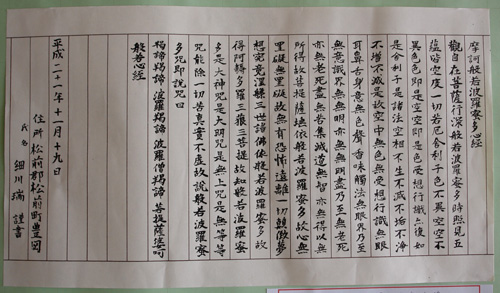 摩訶般若波羅蜜多心経
観自在菩薩行深般若波羅蜜多時照見五
蘊皆空度一切苦厄舎利子色不異空空不
異色色即是空空即是色受想行識亦復如
是舎利子是諸法空相不生不滅不垢不浄
不増不減是故空中無色無受想行識無眼
耳鼻舌身意無色声香味触法無眼界乃至
無意識界無無明亦無無明尽乃至無老死
亦無老死尽無苦集滅道無智亦無得以無
所得故菩提薩埵依般若波羅蜜多故心無
罣礙無罣礙故無有恐怖遠離一切顛倒夢
想究竟涅槃三世諸佛依般若波羅蜜多故
得阿耨多羅三藐三菩提故知般若波羅蜜
多是大神呪是大明呪是無上呪是無等等
呪能除一切苦真実不虚故説般若波羅蜜
多呪即説呪曰
羯諦羯諦 波羅羯諦 波羅僧羯諦 菩提薩婆呵
般若心経
平成二十一年十一月十九日
住所 松前郡松前町豊岡
氏名 細川 瑞 謹書